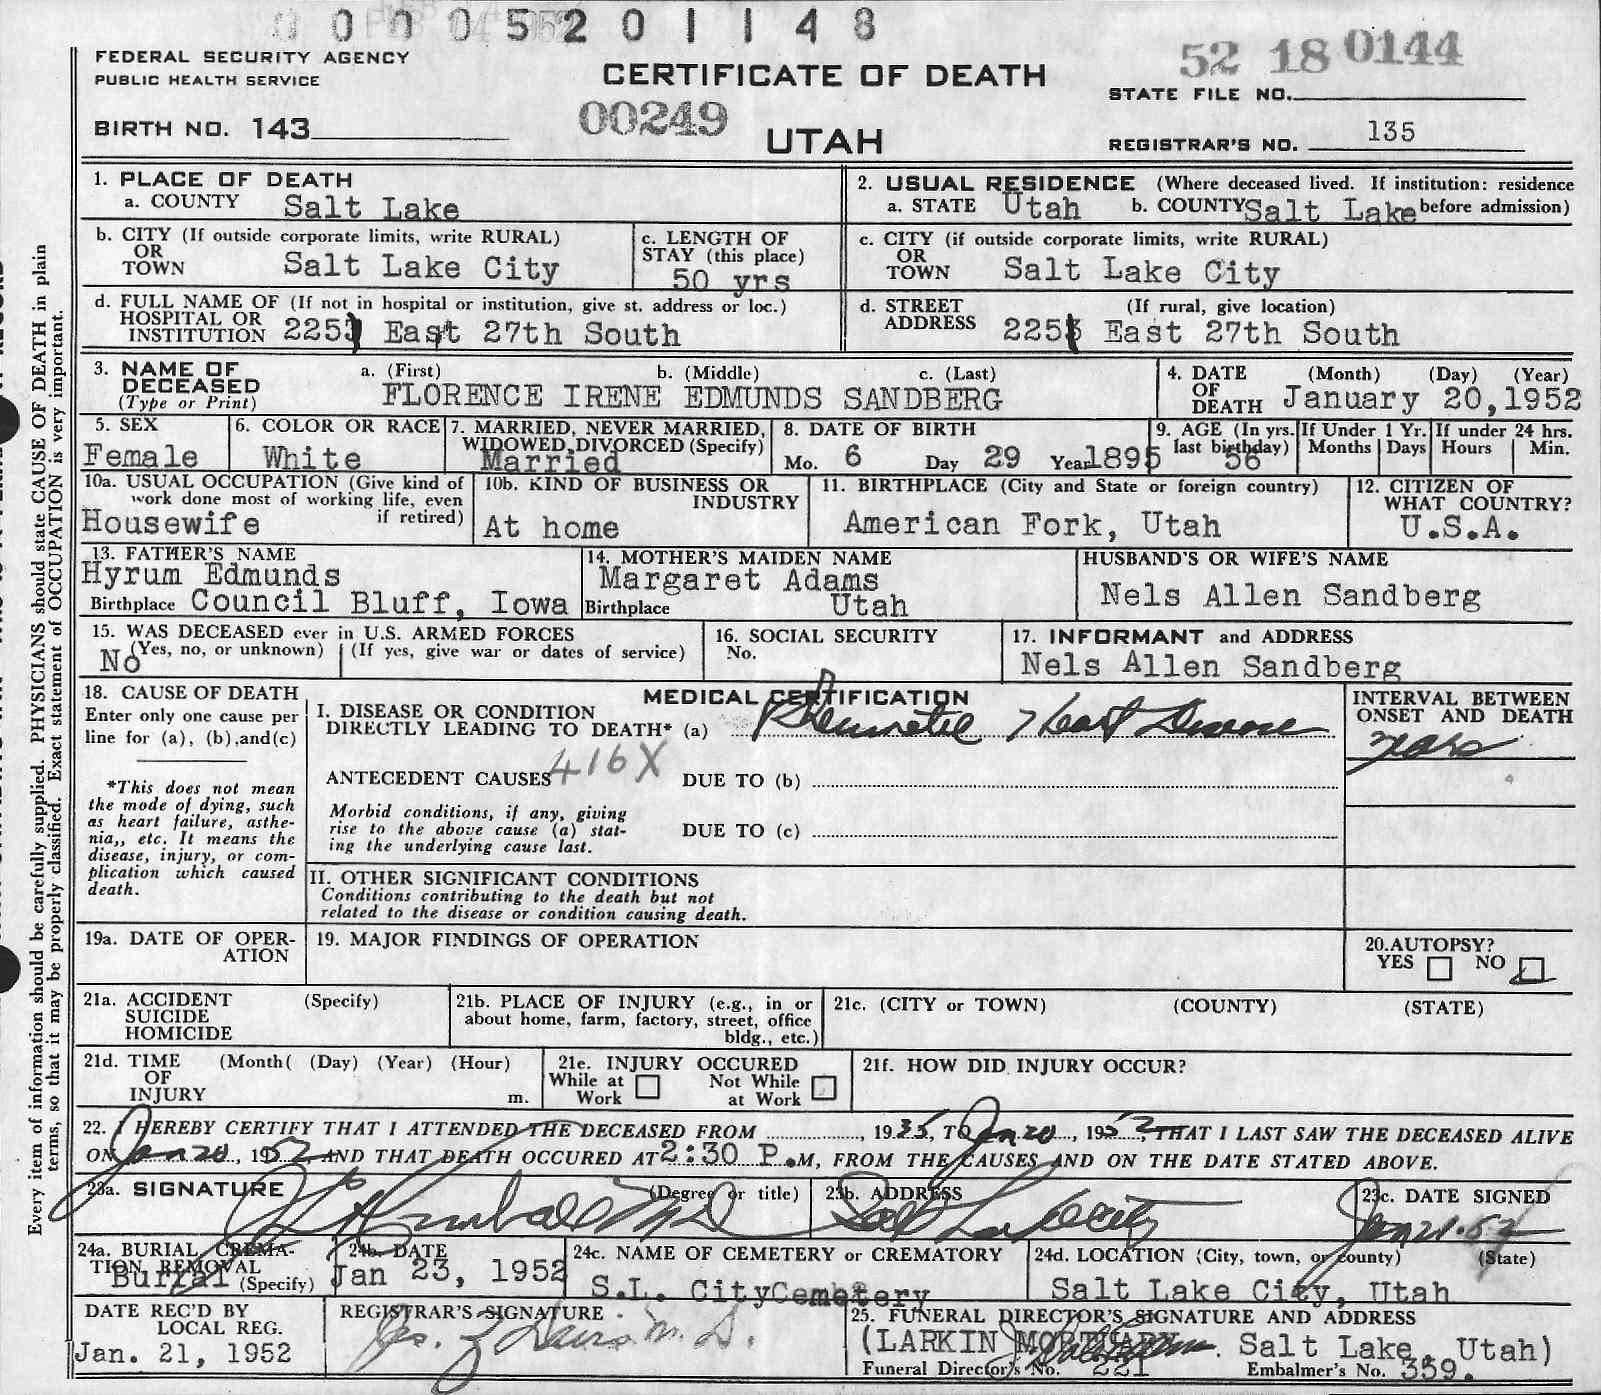 0 0 0 5 2 0 1 1 4 8
FEDERAL SECURITY AGENCY
PUBLIC HEALTH SERVICE
CERTIFICATE OF DEATH
52 18 0144
STATE FILE NO.
BIRTH NO. 143
00249
UTAH
REGISTRAR'S NO. 135
1. PLACE OF DEATH
a. COUNTY Salt Lake
2. USUAL RESIDENCE (Where deceased lived. If institution: residence
a. STATE Utah b. COUNTY Salt Lake before admission)
b. CITY (If outside corporate limits, write RURAL)
OR
TOWN Salt Lake City
c. LENGTH OF
STAY (this place)
50 yrs
c. CITY (if outside corporate limits, write RURAL)
OR
TOWN Salt Lake City
d. FULL NAME OF (If not in hospital or institution, give st. address or loc.)
HOSPITAL OR
INSTITUTION East 27th South
d. STREET (If rural, give location)
ADDRESS East 27th South
3. NAME OF a. (First) b. (Middle) c. (Last)
DECEASED
(Type or Print) FLORENCE IRENE EDMUNDS SANDBERG
4. DATE (Month) (Day) (Year)
OF
DEATH January 20, 1952
5. SEX
Female
6. COLOR OR RACE
White
7. MARRIED, NEVER MARRIED,
WIDOWED, DIVORCED (Specify)
Married
8. DATE OF BIRTH
Mo. 6 Day 29 Year 1895
9. AGE (In yrs.
last birthday) 56
If Under 1 Yr.
Months Days
If under 24 hrs.
Hours Min.
10a. USUAL OCCUPATION (Give kind of
work done most of working life, even
if retired)
Housewife
10b. KIND OF BUSINESS OR
INDUSTRY
At home
11. BIRTHPLACE (City and State or foreign country)
American Fork, Utah
12. CITIZEN OF
WHAT COUNTRY?
U.S.A.
13. FATHER'S NAME
Hyrum Edmunds
Birthplace Council Bluff, Iowa
14. MOTHER'S MAIDEN NAME
Margaret Adams
Birthplace Utah
HUSBAND'S OR WIFE'S NAME
Nels Allen Sandberg
15. WAS DECEASED ever in U.S. ARMED FORCES
(Yes, no, or unknown) (If yes, give war or dates of service)
No
16. SOCIAL SECURITY
No.
17. INFORMANT and ADDRESS
Nels Allen Sandberg
18. CAUSE OF DEATH
Enter only one cause per
line for (a), (b), and (c)
*This does not mean
the mode of dying, such
as heart failure, asthe-
nia,, etc. It means the
disease, injury, or com-
plication which caused
death.
MEDICAL CERTIFICATION
I. DISEASE OR CONDITION
DIRECTLY LEADING TO DEATH* (a) Rheumatic Heart Disease
ANTECEDENT CAUSES 416X DUE TO (b)
Morbid conditions, if any, giving
rise to the above cause (a) stat-
ing the underlying cause last.
DUE TO (c)
INTERVAL BETWEEN
ONSET AND DEATH
years
II. OTHER SIGNIFICANT CONDITIONS
Conditions contributing to the death but not
related to the disease or condition causing death.
19a. DATE OF OPER-
ATION
19. MAJOR FINDINGS OF OPERATION
20. AUTOPSY?
YES NO
21a. ACCIDENT (Specify)
SUICIDE
HOMICIDE
21b. PLACE OF INJURY (e.g., in or
about home, farm, factory, street, office
bldg., etc.)
21c. (CITY or TOWN) (COUNTY) (STATE)
21d. TIME (Month( (Day) (Year) (Hour)
OF
INJURY m.
21e. INJURY OCCURED
While at Work Not While at Work
21f. HOW DID INJURY OCCUR?
22. I HEREBY CERTIFY THAT I ATTENDED THE DECEASED FROM , 1935, TO Jan 20, 1952, THAT I LAST SAW THE DECEASED ALIVE
ON Jan 20, 1952 AND THAT DEATH OCCURED AT 2:30 P.M, FROM THE CAUSES AND ON THE DATE STATED ABOVE.
23a. SIGNATURE (Degree or title)
Kimball MD
23b. ADDRESS
Salt Lake City
23c. DATE SIGNED
Jan 21-52
24a. BURIAL, CREMA-
TION REMOVAL
(Specify)
Burial
24b. DATE
Jan 23, 1952
24c. NAME OF CEMETERY or CREMATORY
S.L. City Cemetery
24d. LOCATION (City, town, or county) (State)
Salt Lake City, Utah
DATE REC'D BY
LOCAL REG.
Jan. 21, 1952
REGISTRAR'S SIGNATURE
M. D.
25. FUNERAL DIRECTOR'S SIGNATURE AND ADDRESS
(LARKIN MORTUARY Salt Lake, Utah)
Funeral Director's No. 221 Embalmer's No. 359.
Every item of information should be carefully supplied. PHYSICIANS should state CAUSE OF DEATH in plain
terms, so that it may be properly classified. Exact statement of OCCUPATION is very important.